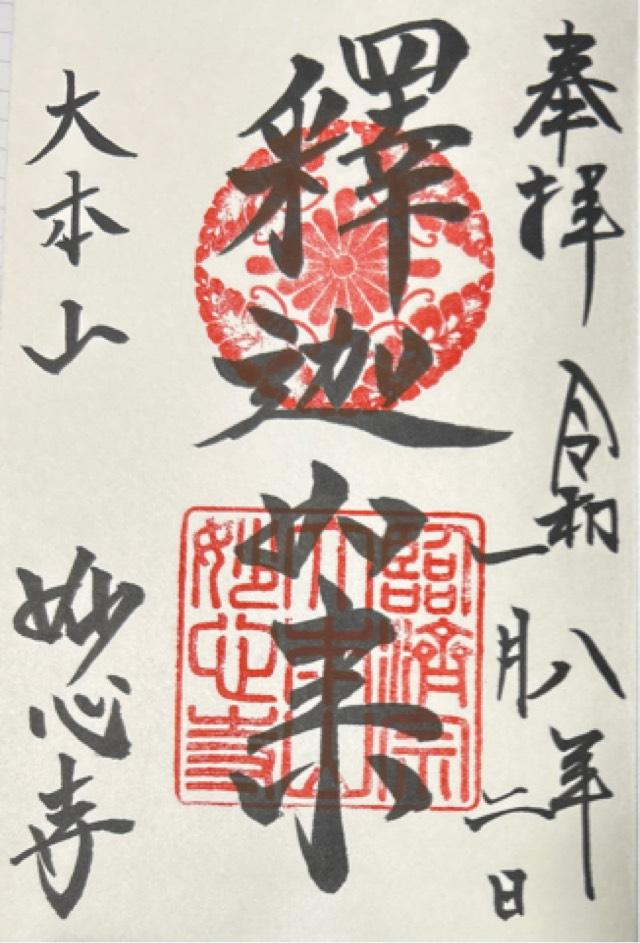 奉拝 令和八年
一月二日
釋迦如来
臨済宗
大本山
妙心寺
大本山 妙心寺